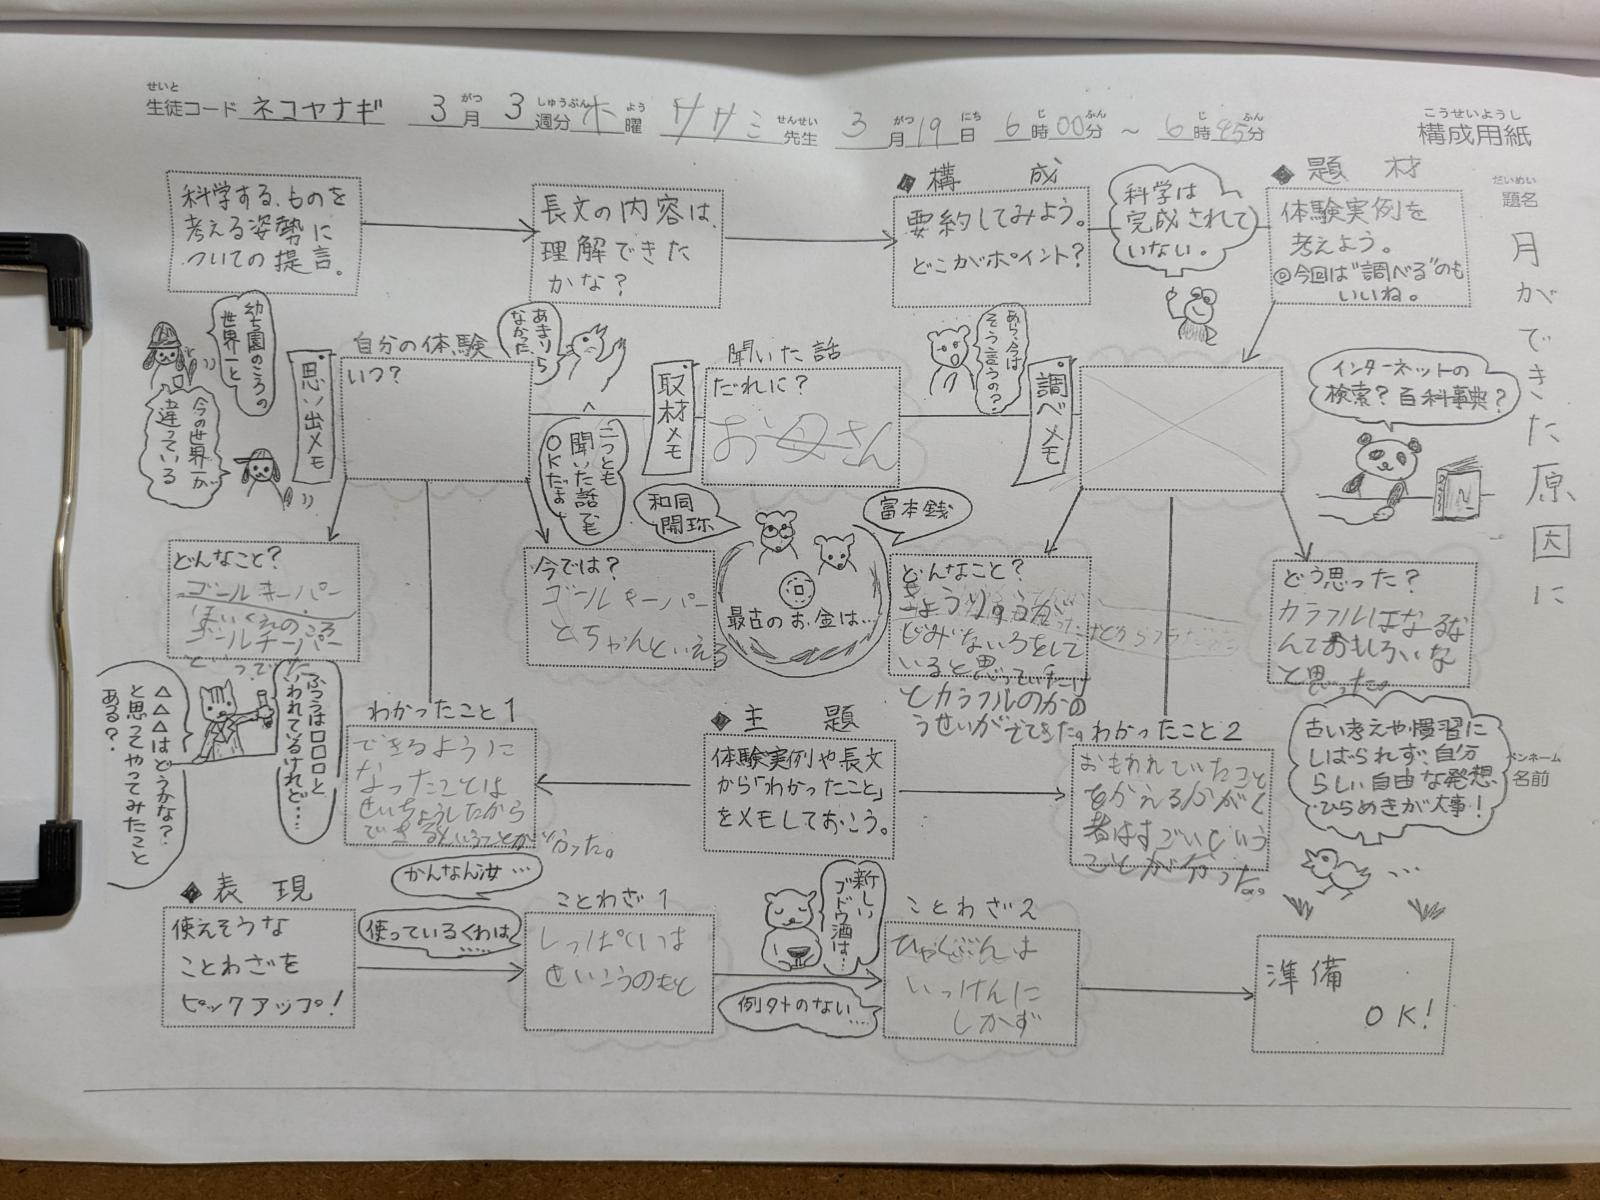 せいと
生徒コード ネコヤナギ 3月 3週分 木曜 ササミ 先生 3月19日 6時00分 〜 6時45分
がつ しゅうぶん よう せんせい がつ にち じ ふん じ ふん
こうせいようし
構成用紙
だいめい
題名
月ができた原因に
ペンネーム
名前
科学する、ものを
考える姿勢に
ついての提言。
長文の内容は、
理解できた
かな?
◆構成
要約してみよう。
どこがポイント?
科学は
完成されて
いない。
◆題材
体験実例を
考えよう。
◎今回は"調べる"のも
いいね。
幼ち園のころの
世界一と
今の世界一が
違っている
思い出メモ
自分の体験
いつ?
あまり
なかったら
二つとも
聞いた話でも
OKだよ
取材メモ
聞いた話
だれに?
お母さん
あら、今は
そう言うの?
調べメモ
インターネットの
検索?百科事典?
どんなこと?
ゴールキーパー
ゴールチーパー
といってた
今では?
ゴールキーパー
とちゃんといえる
和同
開珎
富本銭
最古のお金は…
どんなこと?
きょうりゅうが
じみないろをして
いると思っていたけ
どカラフルのかの
うせいがでてきた。
どう思った?
カラフルはなるな
んておもしろいな
と思った。
ふつうは□□□□と
いわれているけれど…
△△△はどうかな?
と思ってやってみたこと
ある?
わかったこと1
できるように
なったことは
せいちょうしたから
できるということが分かった。
◆主題
体験実例や長文
から「わかったこと」
をメモしておこう。
わかったこと2
おもわれていたこと
をかえるかがく
者はすごいという
ことが分かった。
古い考えや慣習に
しばられず、自分
らしい自由な発想、
ひらめきが大事!
◆表現
使えそうな
ことわざを
ピックアップ!
かんなん汝…
使っているくわは……
ことわざ1
しっぱいは
せいこうのもと
新しい
ブドウ酒は…
例外のない……
ことわざ2
ひゃくぶんは
いっけんに
しかず
準備
OK!